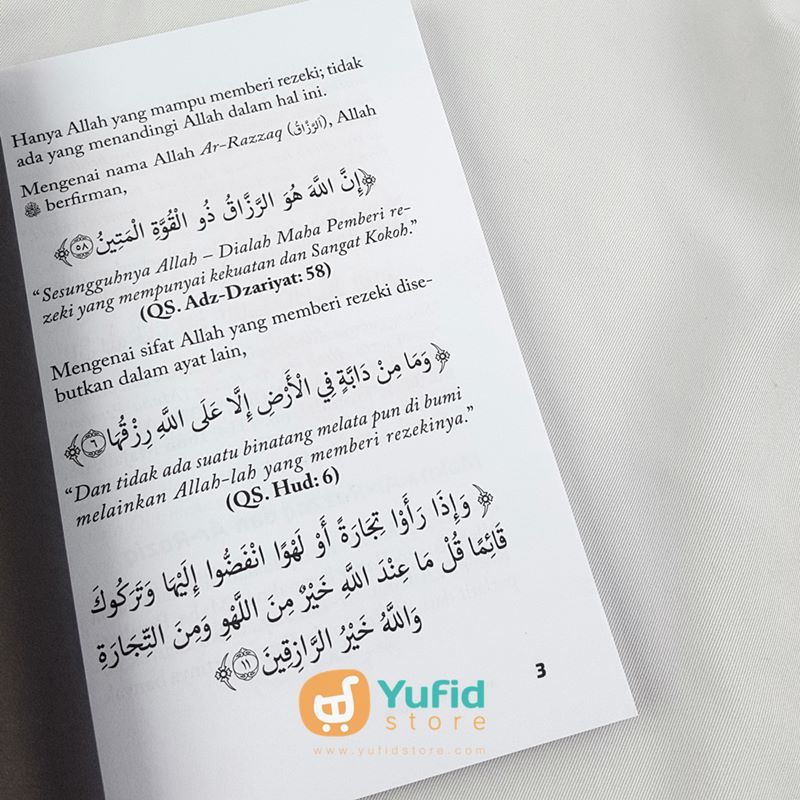 Hanya Allah yang mampu memberi rezeki; tidak
ada yang menandingi Allah dalam hal ini.
Mengenai nama Allah Ar-Razzaq (الرَّزَّاقُ), Allah
ﷻ berfirman,
﴿إِنَّ اللَّهَ هُوَ الرَّزَّاقُ ذُو الْقُوَّةِ الْمَتِينُ ۝٥٨﴾
“Sesungguhnya Allah – Dialah Maha Pemberi re-
zeki yang mempunyai kekuatan dan Sangat Kokoh.”
(QS. Adz-Dzariyat: 58)
Mengenai sifat Allah yang memberi rezeki dise-
butkan dalam ayat lain,
﴿وَمَا مِنْ دَابَّةٍ فِي الْأَرْضِ إِلَّا عَلَى اللَّهِ رِزْقُهَا ۝٦﴾
“Dan tidak ada suatu binatang melata pun di bumi
melainkan Allah-lah yang memberi rezekinya.”
(QS. Hud: 6)
﴿وَإِذَا رَأَوْا تِجَارَةً أَوْ لَهْوًا انْفَضُّوا إِلَيْهَا وَتَرَكُوكَ
قَائِمًا قُلْ مَا عِنْدَ اللَّهِ خَيْرٌ مِنَ اللَّهْوِ وَمِنَ التِّجَارَةِ
وَاللَّهُ خَيْرُ الرَّازِقِينَ ۝١١﴾
3
Yufid
store
www.yufidstore.com